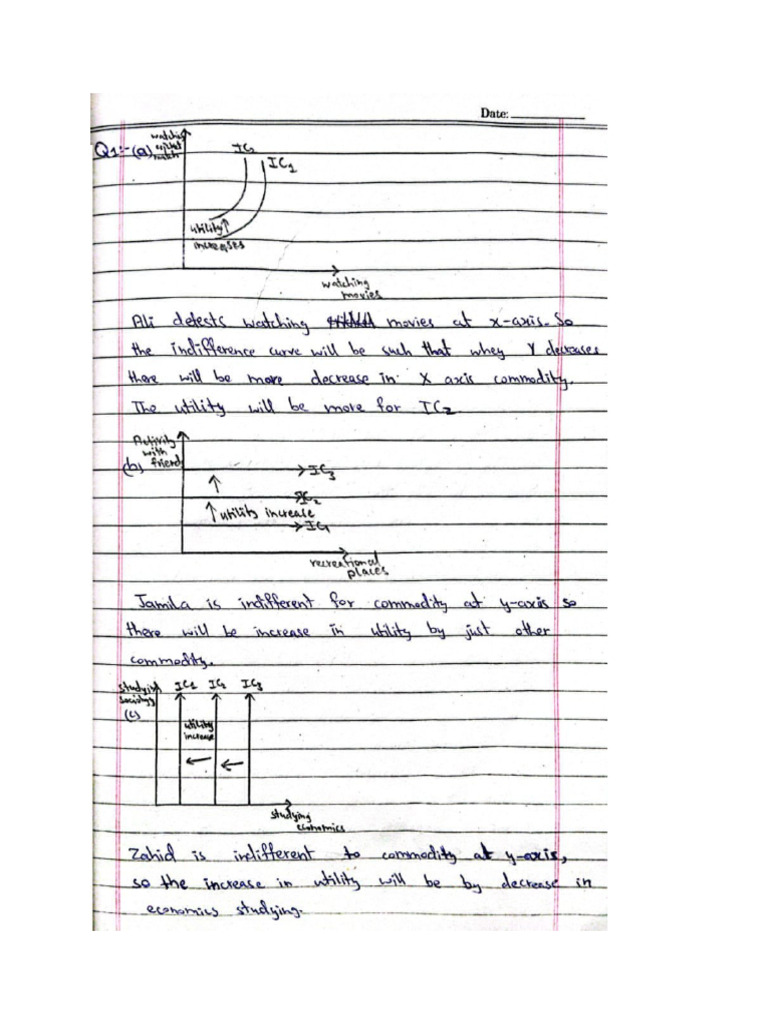 Date:
Q1:-(a) watching cricket match
IC2
IC1
utility↑
increases
watching
movies
Ali detests watching movies at x-axis. So
the indifference curve will be such that whey Y decreases
there will be more decrease in X axis commodity.
The utility will be more for IC2.
Activity
with
(b) friend
IC3
IC2
↑utility increase
IC1
recreational
places
Jamila is indifferent for commodity at y-axis so
there will be increase in utility by just other
commodity.
studying IC1 IC2 IC3
sociology
(c)
utility
increase
studying
economics
Zahid is indifferent to commodity at y-axis,
so the increase in utility will be by decrease in
economics studying.